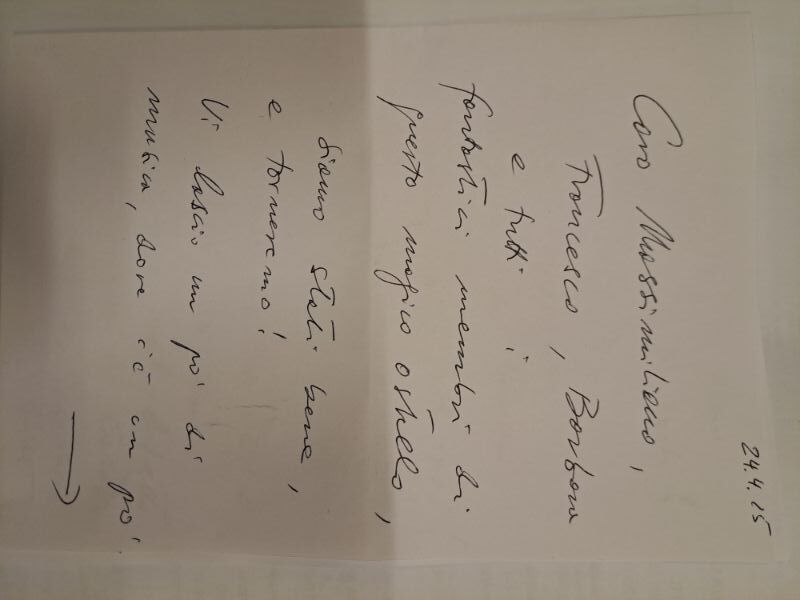 24.4.15
Caro Massimiliano,
Francesco, Barbara
e tutti i
fantastici membri di
questo magico ostello,
siamo stati bene,
e torneremo!
Vi lascio un po' di
musica, dove c'è un po'
→